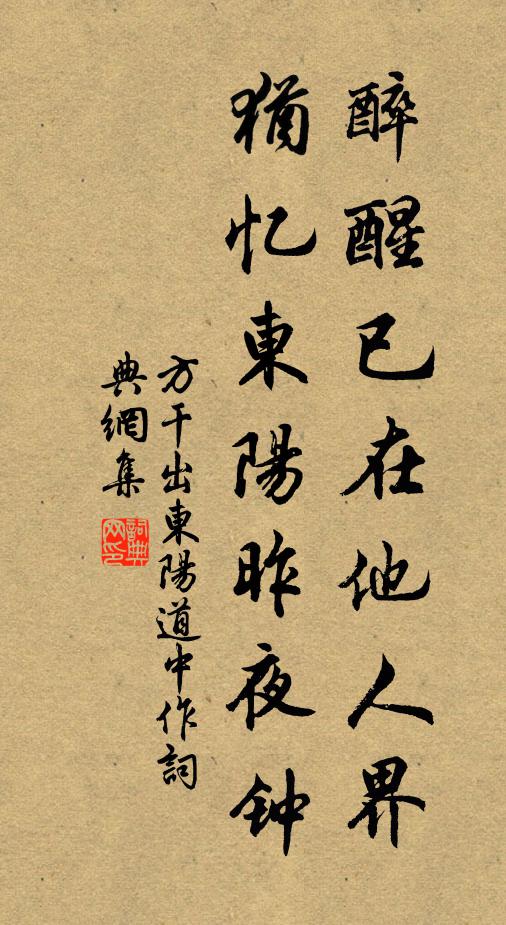 醉醒已在他人界
猶忆東陽昨夜钟
方干出東陽道中作詞
典網集
詞典网印